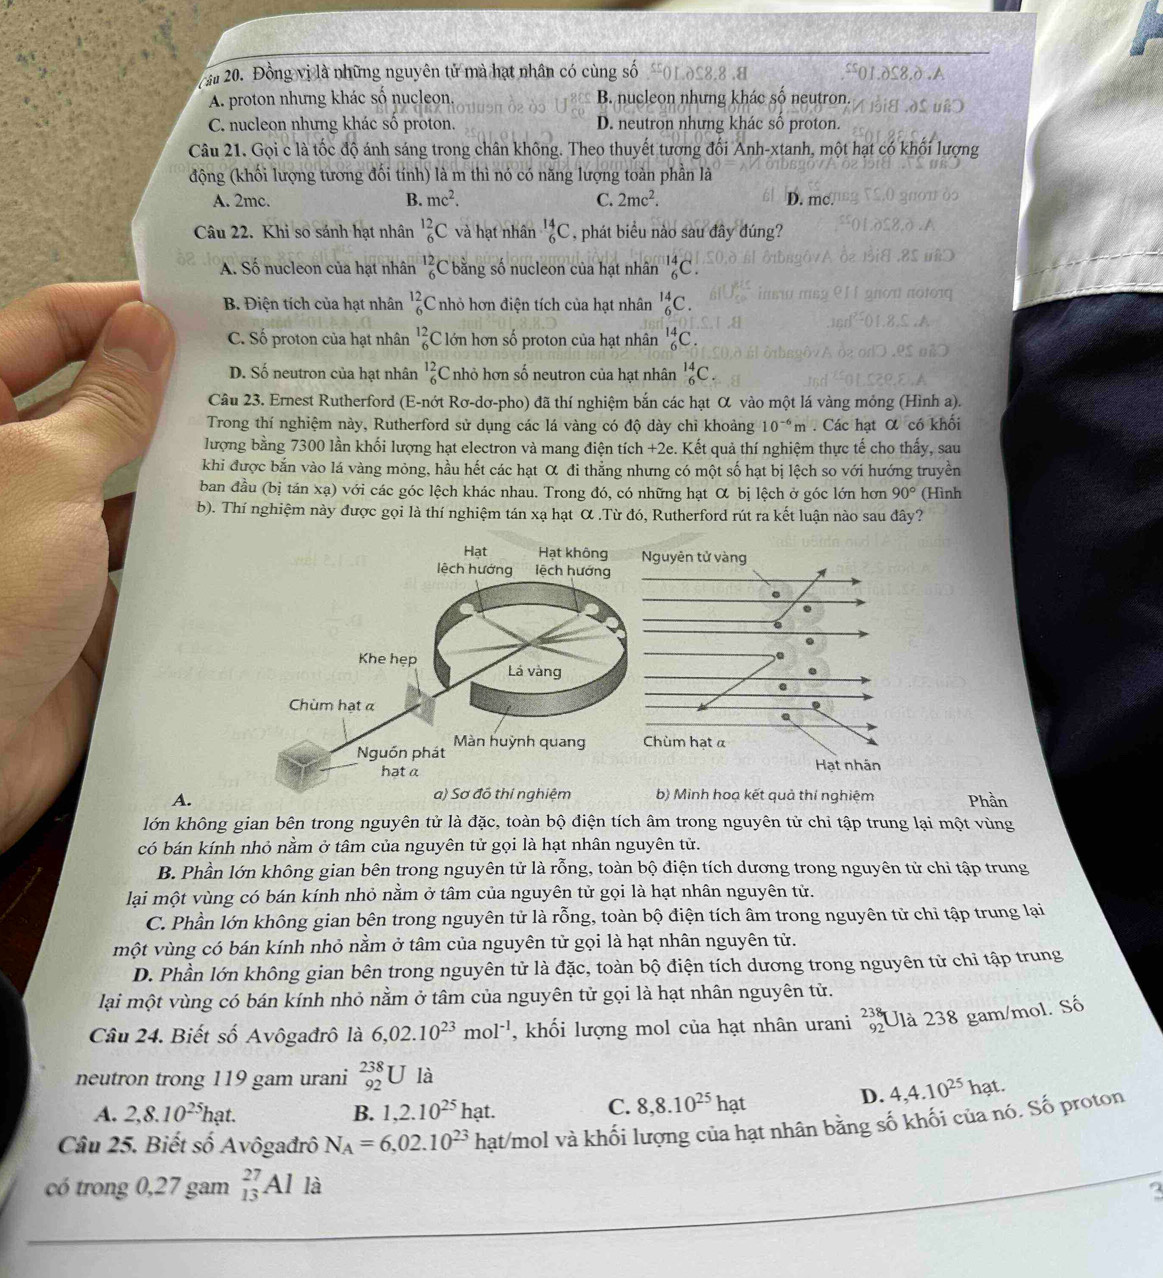 Câu 20. Đồng vị là những nguyên tử mà hạt nhân có cùng số
A. proton nhưng khác số nucleon. B. nucleon nhưng khác số neutron.
C. nucleon nhưng khác số proton. D. neutron nhưng khác số proton.
Câu 21. Gọi c là tốc độ ánh sáng trong chân không. Theo thuyết tương đối Anh-xtanh, một hạt có khối lượng
động (khối lượng tương đối tính) là m thì nó có năng lượng toàn phần là
A. 2mc. B. mc². C. 2mc². D. mc.
Câu 22. Khi so sánh hạt nhân ¹²₆C và hạt nhân ¹⁴₆C, phát biểu nào sau đây đúng?
A. Số nucleon của hạt nhân ¹²₆C bằng số nucleon của hạt nhân ¹⁴₆C.
B. Điện tích của hạt nhân ¹²₆C nhỏ hơn điện tích của hạt nhân ¹⁴₆C.
C. Số proton của hạt nhân ¹²₆C lớn hơn số proton của hạt nhân ¹⁴₆C.
D. Số neutron của hạt nhân ¹²₆C nhỏ hơn số neutron của hạt nhân ¹⁴₆C.
Câu 23. Ernest Rutherford (E-nớt Rơ-dơ-pho) đã thí nghiệm bắn các hạt α vào một lá vàng mỏng (Hình a).
Trong thí nghiệm này, Rutherford sử dụng các lá vàng có độ dày chỉ khoảng 10⁻⁶m . Các hạt α có khối
lượng bằng 7300 lần khối lượng hạt electron và mang điện tích +2e. Kết quả thí nghiệm thực tế cho thấy, sau
khi được bắn vào lá vàng mỏng, hầu hết các hạt α đi thẳng nhưng có một số hạt bị lệch so với hướng truyền
ban đầu (bị tán xạ) với các góc lệch khác nhau. Trong đó, có những hạt α bị lệch ở góc lớn hơn 90° (Hình
b). Thí nghiệm này được gọi là thí nghiệm tán xạ hạt α .Từ đó, Rutherford rút ra kết luận nào sau đây?
Hạt
lệch hướng
Hạt không
lệch hướng
Nguyên tử vàng
Khe hẹp
Lá vàng
Chùm hạt α
Màn huỳnh quang
Chùm hạt α
Nguồn phát
hạt α
Hạt nhân
a) Sơ đồ thí nghiệm b) Minh hoạ kết quả thí nghiệm
A. Phần
lớn không gian bên trong nguyên tử là đặc, toàn bộ điện tích âm trong nguyên tử chỉ tập trung lại một vùng
có bán kính nhỏ nằm ở tâm của nguyên tử gọi là hạt nhân nguyên tử.
B. Phần lớn không gian bên trong nguyên tử là rỗng, toàn bộ điện tích dương trong nguyên tử chỉ tập trung
lại một vùng có bán kính nhỏ nằm ở tâm của nguyên tử gọi là hạt nhân nguyên tử.
C. Phần lớn không gian bên trong nguyên tử là rỗng, toàn bộ điện tích âm trong nguyên tử chỉ tập trung lại
một vùng có bán kính nhỏ nằm ở tâm của nguyên tử gọi là hạt nhân nguyên tử.
D. Phần lớn không gian bên trong nguyên tử là đặc, toàn bộ điện tích dương trong nguyên tử chỉ tập trung
lại một vùng có bán kính nhỏ nằm ở tâm của nguyên tử gọi là hạt nhân nguyên tử.
Câu 24. Biết số Avôgađrô là 6,02.10²³ mol⁻¹, khối lượng mol của hạt nhân urani ²³⁸₉₂U là 238 gam/mol. Số
neutron trong 119 gam urani ²³⁸₉₂U là
A. 2,8.10²⁵hạt. B. 1,2.10²⁵ hạt. C. 8,8.10²⁵ hạt D. 4,4.10²⁵ hạt.
Câu 25. Biết số Avôgađrô N_A = 6,02.10²³ hạt/mol và khối lượng của hạt nhân bằng số khối của nó. Số proton
có trong 0,27 gam ²⁷₁₃Al là